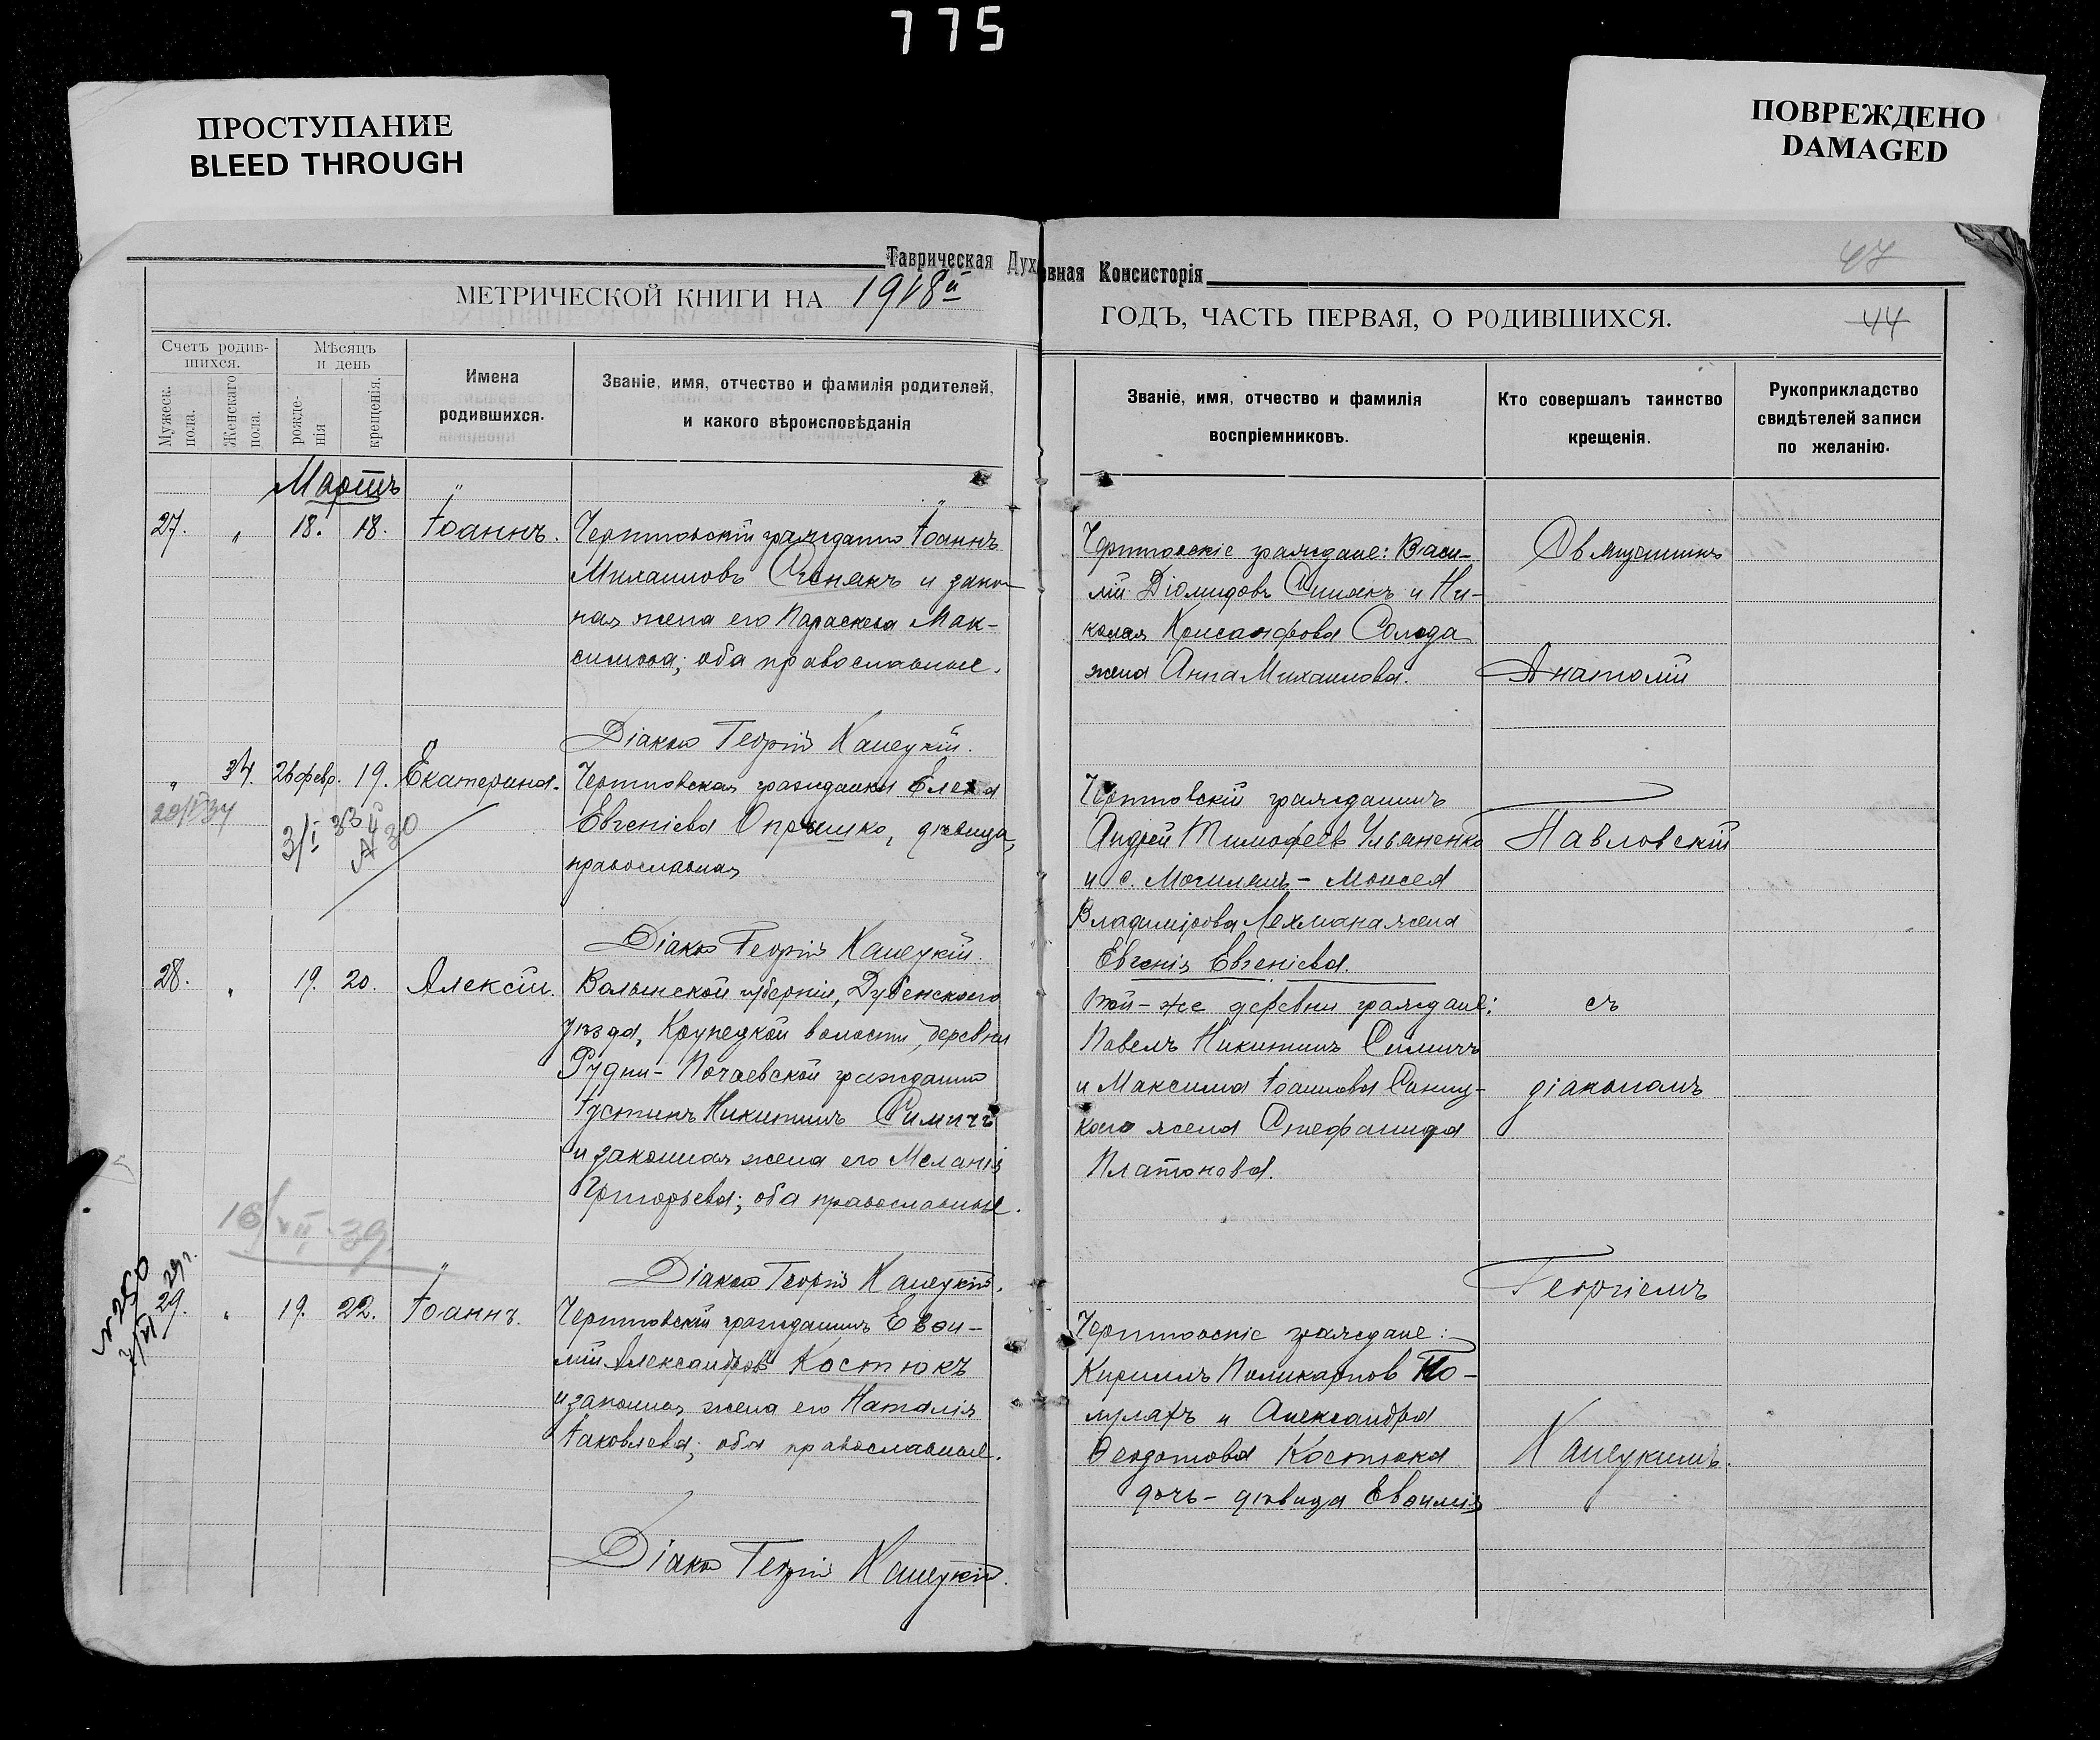 775
ПРОСТУПАНИЕ
BLEED THROUGH
ПОВРЕЖДЕНО
DAMAGED
Таврическая Духовная Консисторія
47
МЕТРИЧЕСКОЙ КНИГИ НА 1918й
ГОДЪ, ЧАСТЬ ПЕРВАЯ, О РОДИВШИХСЯ.
44
Счетъ родив-
шихся.
Мужеск.
пола.
Женскаго
пола.
Мѣсяцъ
и день
рожде-
нія
крещенія.
Имена
родившихся.
Званіе, имя, отчество и фамилія родителей,
и какого вѣроисповѣданія
Званіе, имя, отчество и фамилія
воспріемниковъ.
Кто совершалъ таинство
крещенія.
Рукоприкладство
свидѣтелей записи
по желанію.
Мартъ
27. " 18. 18. Іоаннъ.
гражданинъ Іоаннъ
Михаиловъ и закон-
ная жена его Параскева Мак-
симова; оба православные.
Діаконъ Георгій
граждане: Васи-
лій Діомидовъ и Ни-
колая Солода
жена Анна Михаилова.
Священникъ
Анатолій
" 34. 26 февр. 19. Екатерина.
гражданка Елена
Евгеніева Опрышко, дѣвица,
православная
29/V 34
3/I 33
Діаконъ Георгій
гражданинъ
Андрей Тимофеевъ Ульяненко
и с. Могилянъ - Моисея
Владимірова Лехмана жена
Евгенія Евгеніева.
Павловскій
28. " 19. 20. Алексій.
Волынской губерніи, Дубенского
уѣзда, Крупецкой волости, деревни
Рудни-Почаевской гражданинъ
Іустинъ Никитинъ Симичъ
и законная жена его Меланія
Григорьева; оба православные.
Діаконъ Георгій
Той-же деревни граждане:
Павелъ Никитинъ Симичъ
и Максима Іоаннова
жена Стефанида
Платонова.
съ
діакономъ
Георгіемъ
16/VII-39.
№ 250
29 г.
29. " 19. 22. Іоаннъ.
гражданинъ Евѳи-
мій Александровъ Костюкъ
и законная жена его Наталія
Іаковлева; оба православные.
Діаконъ Георгій
граждане:
Кириллъ Поликарповъ
и Александра
Ѳеодотова Костюка
дочь - дѣвица Евѳимія